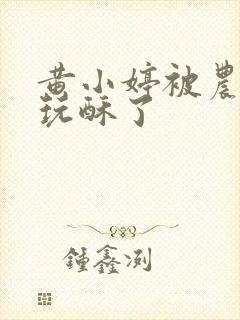 黄小婷被農
玩酥了
鍾鑫浰